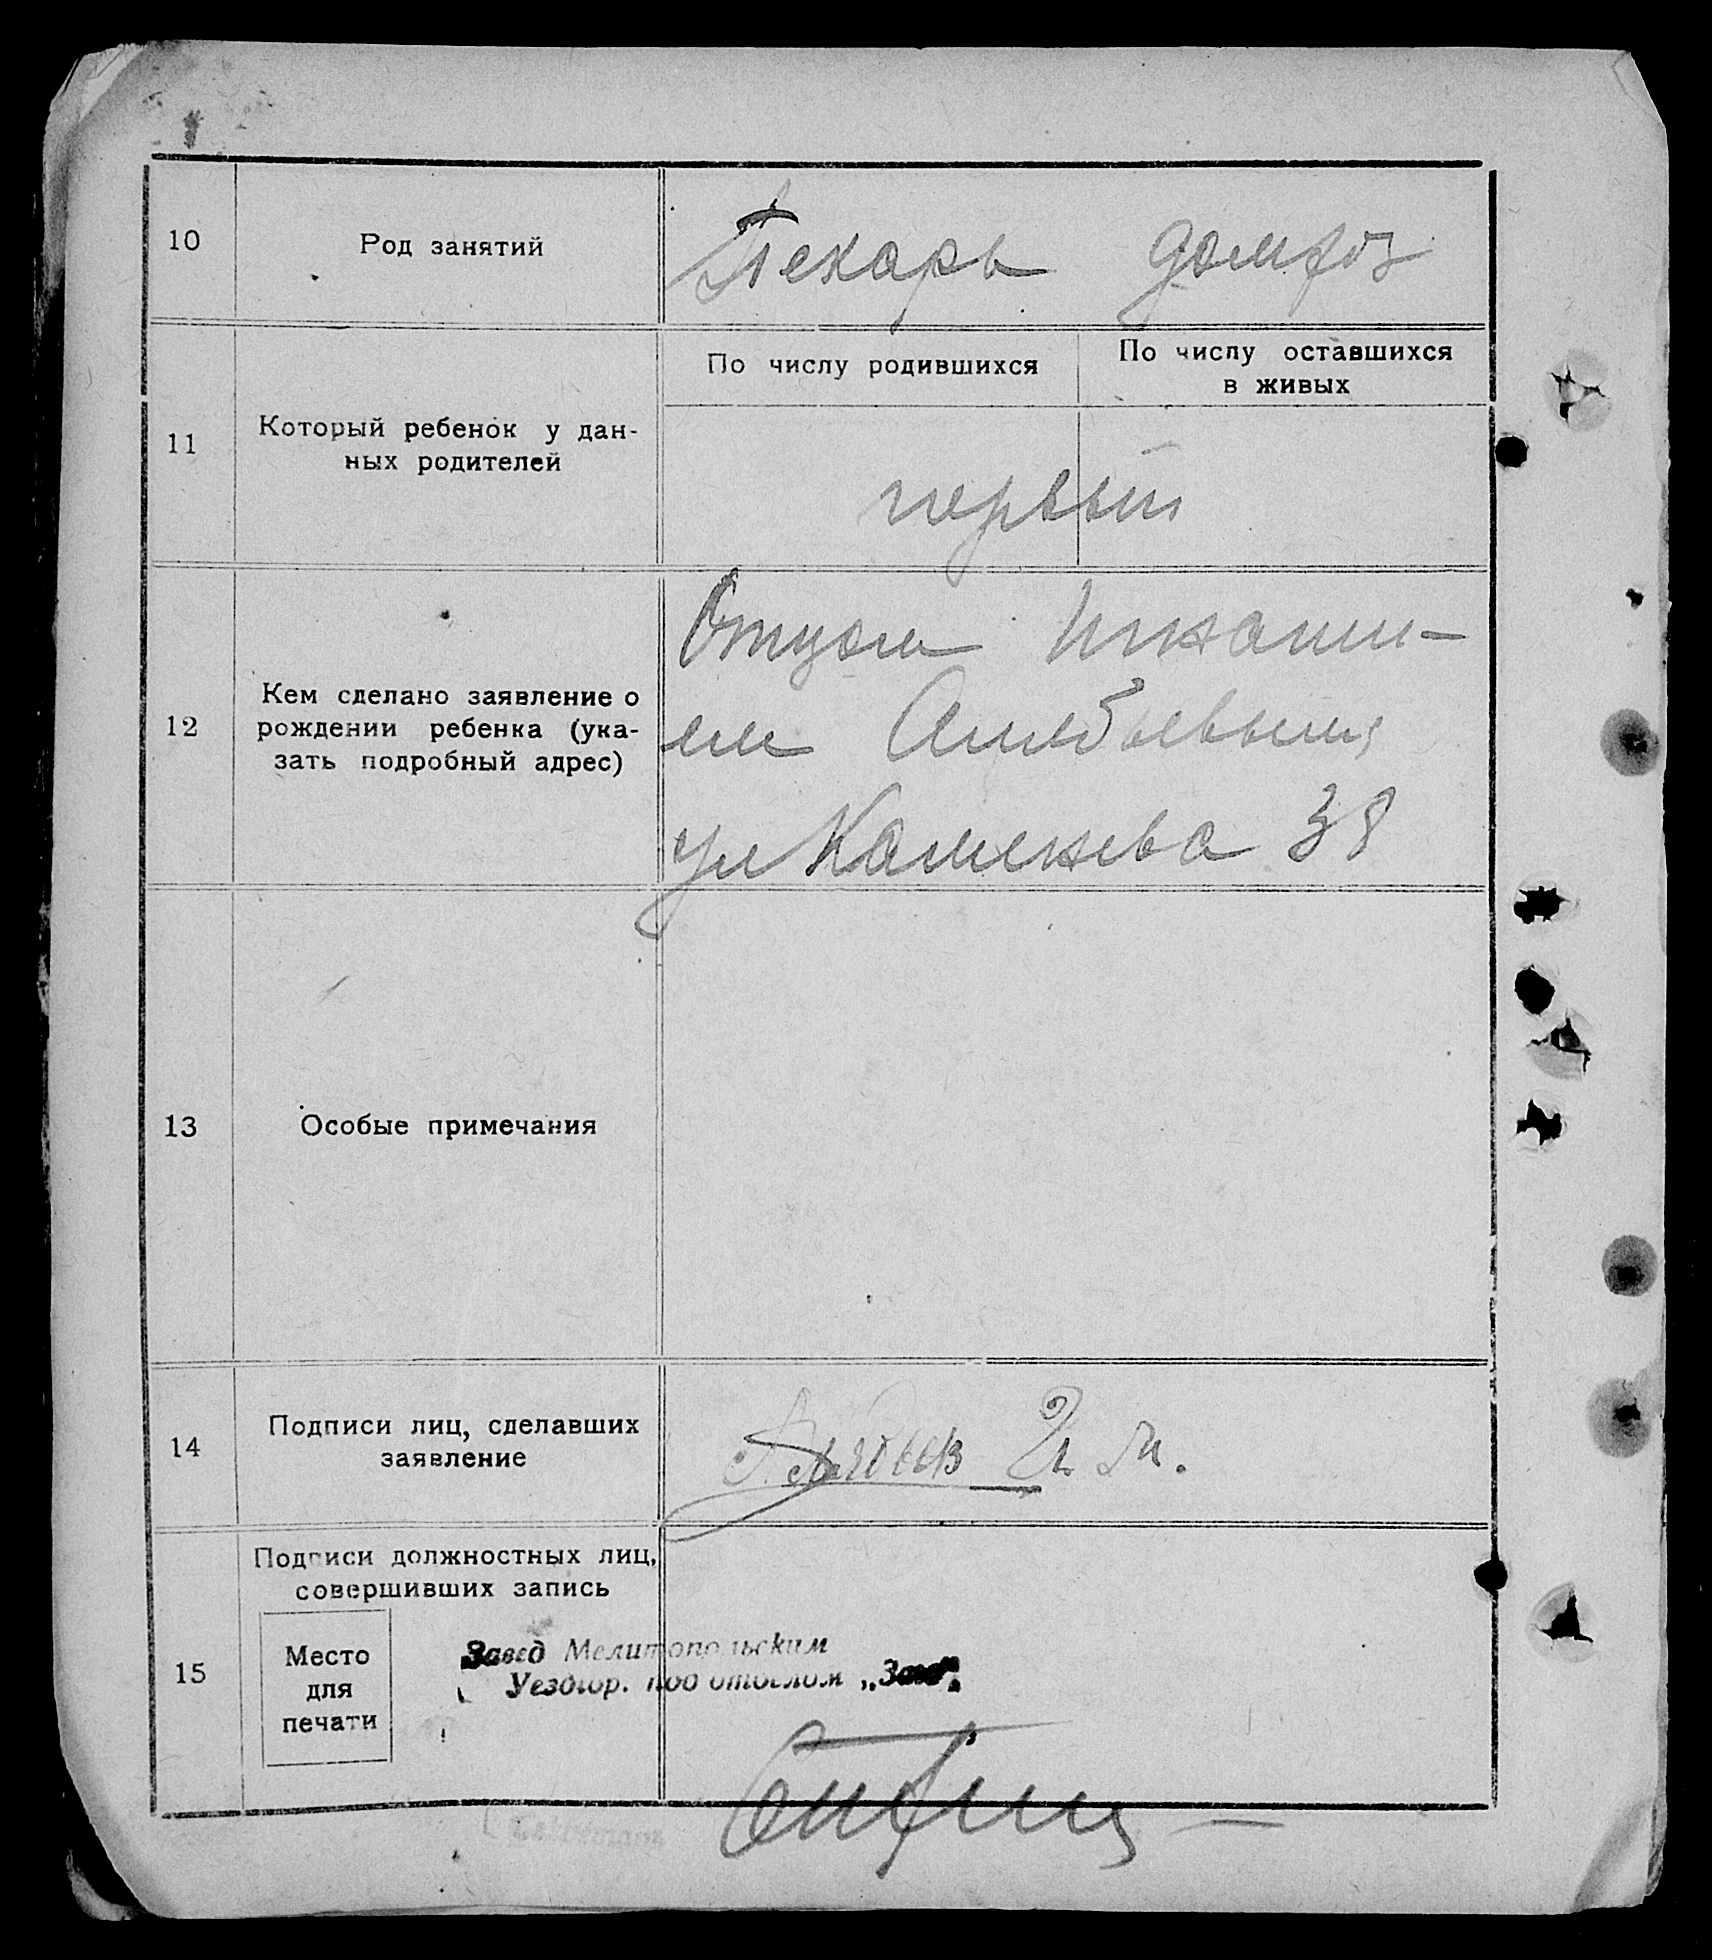 10 Род занятий Пекарь домхоз
11 Который ребенок у дан-
ных родителей
По числу родившихся По числу оставшихся
в живых
первый
12 Кем сделано заявление о
рождении ребенка (ука-
зать подробный адрес)
Отцом
ул Каменева 38
13 Особые примечания
14 Подписи лиц, сделавших
заявление
15 Подписи должностных лиц,
совершивших запись
Место
для
печати
Завед Мелитопольским
Уездгор. под отделом „Загс"